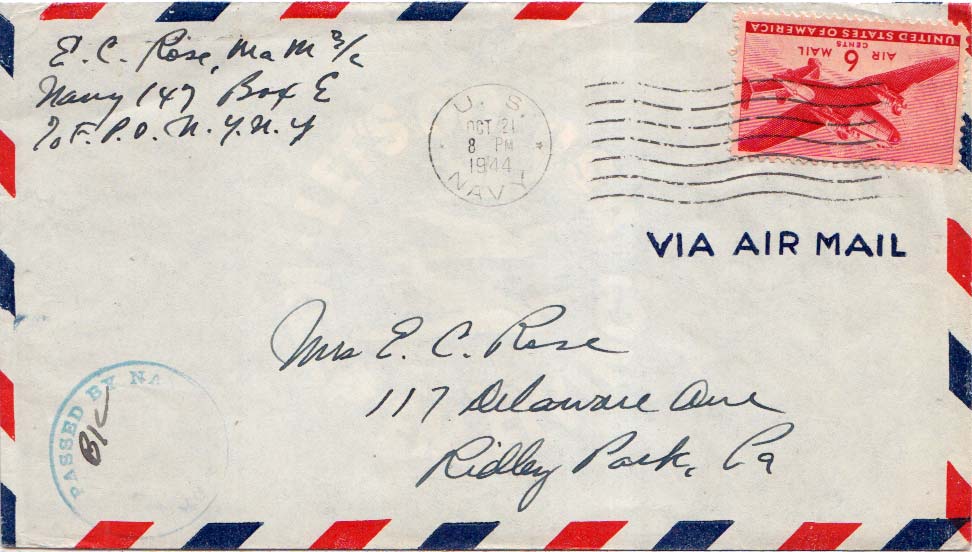 E. C. Rose, MaM 3/c
Navy 147 Box E
c/o F. P. O. N. Y. N. Y
U. S.
OCT 21
8 PM
1944
NAVY
UNITED STATES OF AMERICA
6 CENTS
AIR MAIL
VIA AIR MAIL
Mrs E. C. Rose
117 Delaware Ave
Ridley Park, Pa
PASSED BY NA